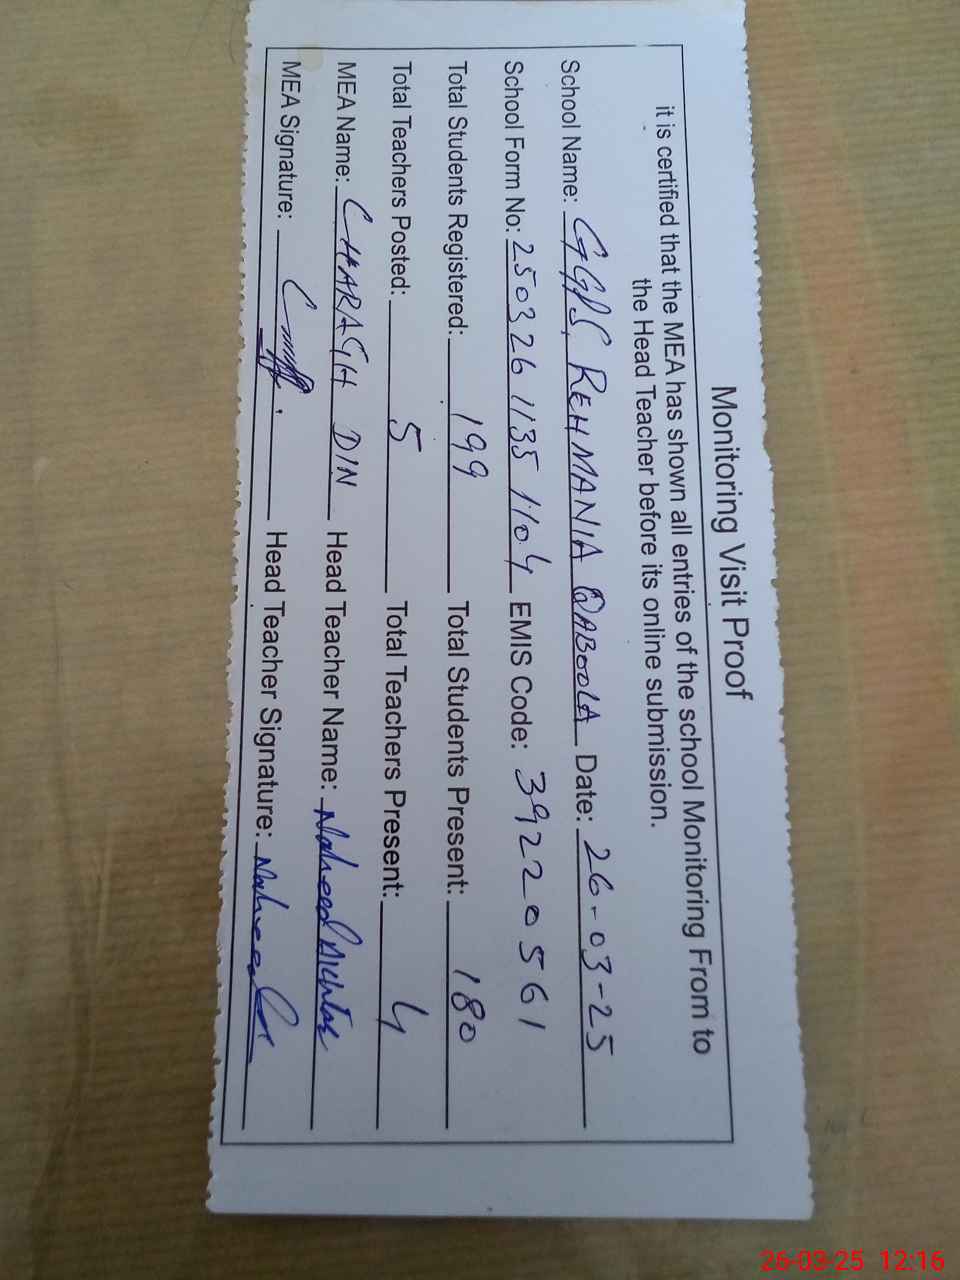 Monitoring Visit Proof
it is certified that the MEA has shown all entries of the school Monitoring From to
the Head Teacher before its online submission.
School Name: GGPS, REHMANIA QABOOLA Date: 26-03-25
School Form No: 250326 1135 1104 EMIS Code: 39220561
Total Students Registered: 199 Total Students Present: 180
Total Teachers Posted: 5 Total Teachers Present: 4
MEA Name: CHARAGH DIN Head Teacher Name: Naheed Akhtar
MEA Signature: Head Teacher Signature: Naheed
26-03-25 12:16